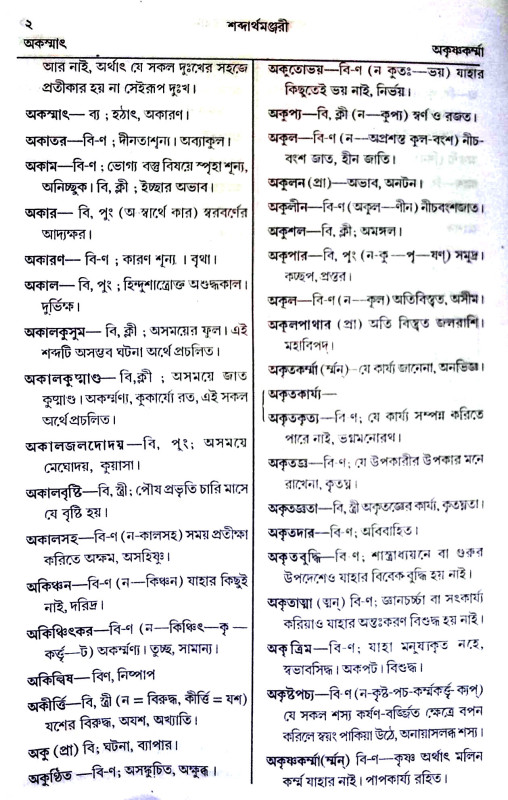 ২
শব্দার্থমঞ্জরী
অকস্মাৎ
অকৃষ্ণকর্ম্মা
আর নাই, অর্থাৎ যে সকল দুঃখের সহজে
প্রতীকার হয় না সেইরূপ দুঃখ।
অকস্মাৎ— ব্য ; হঠাৎ, অকারণ।
অকাতর—বি-ণ ; দীনতাশূন্য। অব্যাকুল।
অকাম—বি-ণ ; ভোগ্য বস্তু বিষয়ে স্পৃহা শূন্য,
অনিচ্ছুক। বি, ক্লী ; ইচ্ছার অভাব।
অকার— বি, পুং (অ স্বার্থে কার) স্বরবর্ণের
আদ্যক্ষর।
অকারণ— বি-ণ ; কারণ শূন্য । বৃথা।
অকাল— বি, পুং ; হিন্দুশাস্ত্রোক্ত অশুদ্ধকাল।
দুর্ভিক্ষ।
অকালকুসুম— বি, ক্লী ; অসময়ের ফুল। এই
শব্দটি অসম্ভব ঘটনা অর্থে প্রচলিত।
অকালকুষ্মাণ্ড— বি,ক্লী ; অসময়ে জাত
কুষ্মাণ্ড। অকর্ম্মণ্য, কুকার্য্যে রত, এই সকল
অর্থে প্রচলিত।
অকালজলদোদয়— বি, পুং; অসময়ে
মেঘোদয়, কুয়াসা।
অকালবৃষ্টি—বি, স্ত্রী; পৌষ প্রভৃতি চারি মাসে
যে বৃষ্টি হয়।
অকালসহ— বি-ণ (ন-কালসহ) সময় প্রতীক্ষা
করিতে অক্ষম, অসহিষ্ণু।
অকিঞ্চন—বি-ণ (ন—কিঞ্চন) যাহার কিছুই
নাই, দরিদ্র।
অকিঞ্চিৎকর—বি-ণ (ন—কিঞ্চিৎ—কৃ—
কর্ত্তৃ—ট) অকর্ম্মণ্য। তুচ্ছ, সামান্য।
অকিল্বিষ— বিণ, নিষ্পাপ
অকীর্ত্তি—বি, স্ত্রী (ন = বিরুদ্ধ, কীর্ত্তি = যশ)
যশের বিরুদ্ধ, অযশ, অখ্যাতি।
অকু (প্রা) বি; ঘটনা, ব্যাপার।
অকুণ্ঠিত —বি-ণ; অসঙ্কুচিত, অক্ষুব্ধ ।
অকুতোভয়—বি-ণ (ন কুতঃ—ভয়) যাহার
কিছুতেই ভয় নাই, নির্ভয়।
অকুপ্য—বি, ক্লী (ন—কুপ্য) স্বর্ণ ও রজত।
অকুল—বি-ণ (ন—অপ্রশস্ত কুল-বংশ) নীচ-
বংশ জাত, হীন জাতি।
অকুলন (প্রা)—অভাব, অনটন।
অকুলীন—বি-ণ (অকুল—ণীন) নীচবংশজাত।
অকুশল—বি, ক্লী; অমঙ্গল।
অকূপার—বি, পুং (ন-কু—পৃ—ষণ্) সমুদ্র।
কচ্ছপ, প্রস্তর।
অকূল—বি-ণ (ন—কূল) অতিবিস্তৃত, অসীম।
অকূলপাথার (প্রা) অতি বিস্তৃত জলরাশি।
মহাবিপদ্।
অকৃতকর্ম্মা (র্ম্মন্)—যে কার্য্য জানেনা, অনভিজ্ঞ।
অকৃতকার্য্য—
অকৃতকৃত্য—বি-ণ; যে কার্য্য সম্পন্ন করিতে
পারে নাই, ভগ্নমনোরথ।
অকৃতজ্ঞ—বি-ণ; যে উপকারীর উপকার মনে
রাখেনা, কৃতঘ্ন।
অকৃতজ্ঞতা—বি, স্ত্রী অকৃতজ্ঞের কার্য্য, কৃতঘ্নতা।
অকৃতদার—বি-ণ; অবিবাহিত।
অকৃতবুদ্ধি—বি-ণ; শাস্ত্রাধ্যয়নে বা গুরুর
উপদেশেও যাহার বিবেক বুদ্ধি হয় নাই।
অকৃতাত্মা (ত্মন্) বি-ণ; জ্ঞানচর্চ্চা বা সৎকার্য্য
করিয়াও যাহার অন্তঃকরণ বিশুদ্ধ হয় নাই।
অকৃত্রিম— বি-ণ; যাহা মনুষ্যকৃত নহে,
স্বভাবসিদ্ধ। অকপট। বিশুদ্ধ।
অকৃষ্টপচ্য—বি-ণ (ন-কৃষ্ট-পচ-কর্ম্মকর্ত্তৃ-ক্যপ্)
যে সকল শস্য কর্ষণ-বর্জ্জিত ক্ষেত্রে বপন
করিলে স্বয়ং পাকিয়া উঠে, অনায়াসলব্ধ শস্য।
অকৃষ্ণকর্ম্মা(র্ম্মন্) বি-ণ—কৃষ্ণ অর্থাৎ মলিন
কর্ম্ম যাহার নাই। পাপকার্য্য রহিত।